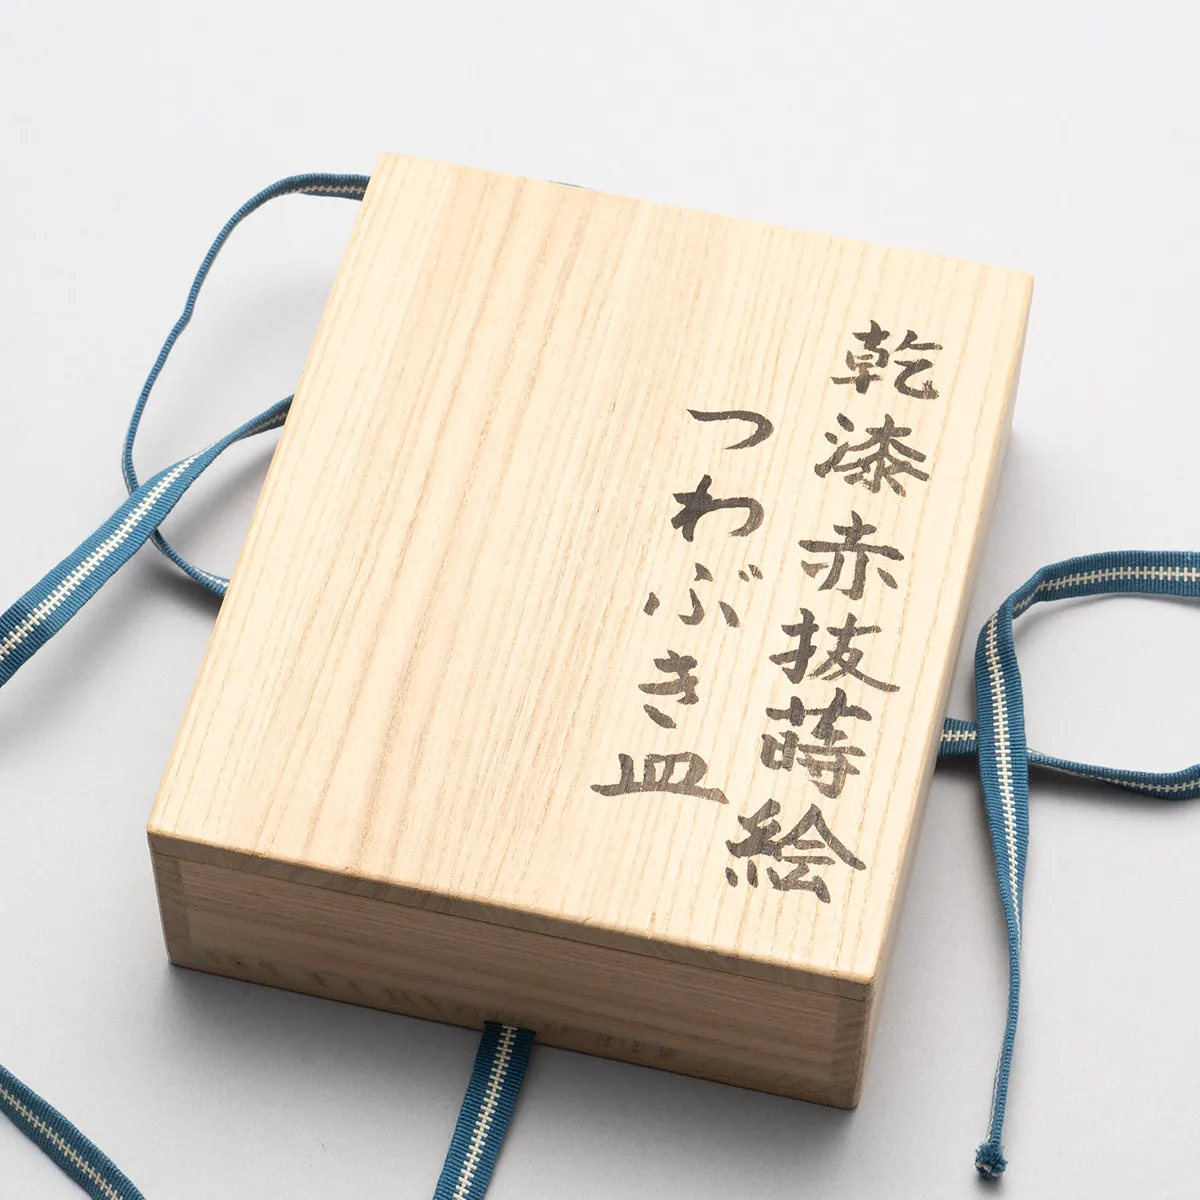 乾漆赤抜蒔絵
つわぶき皿